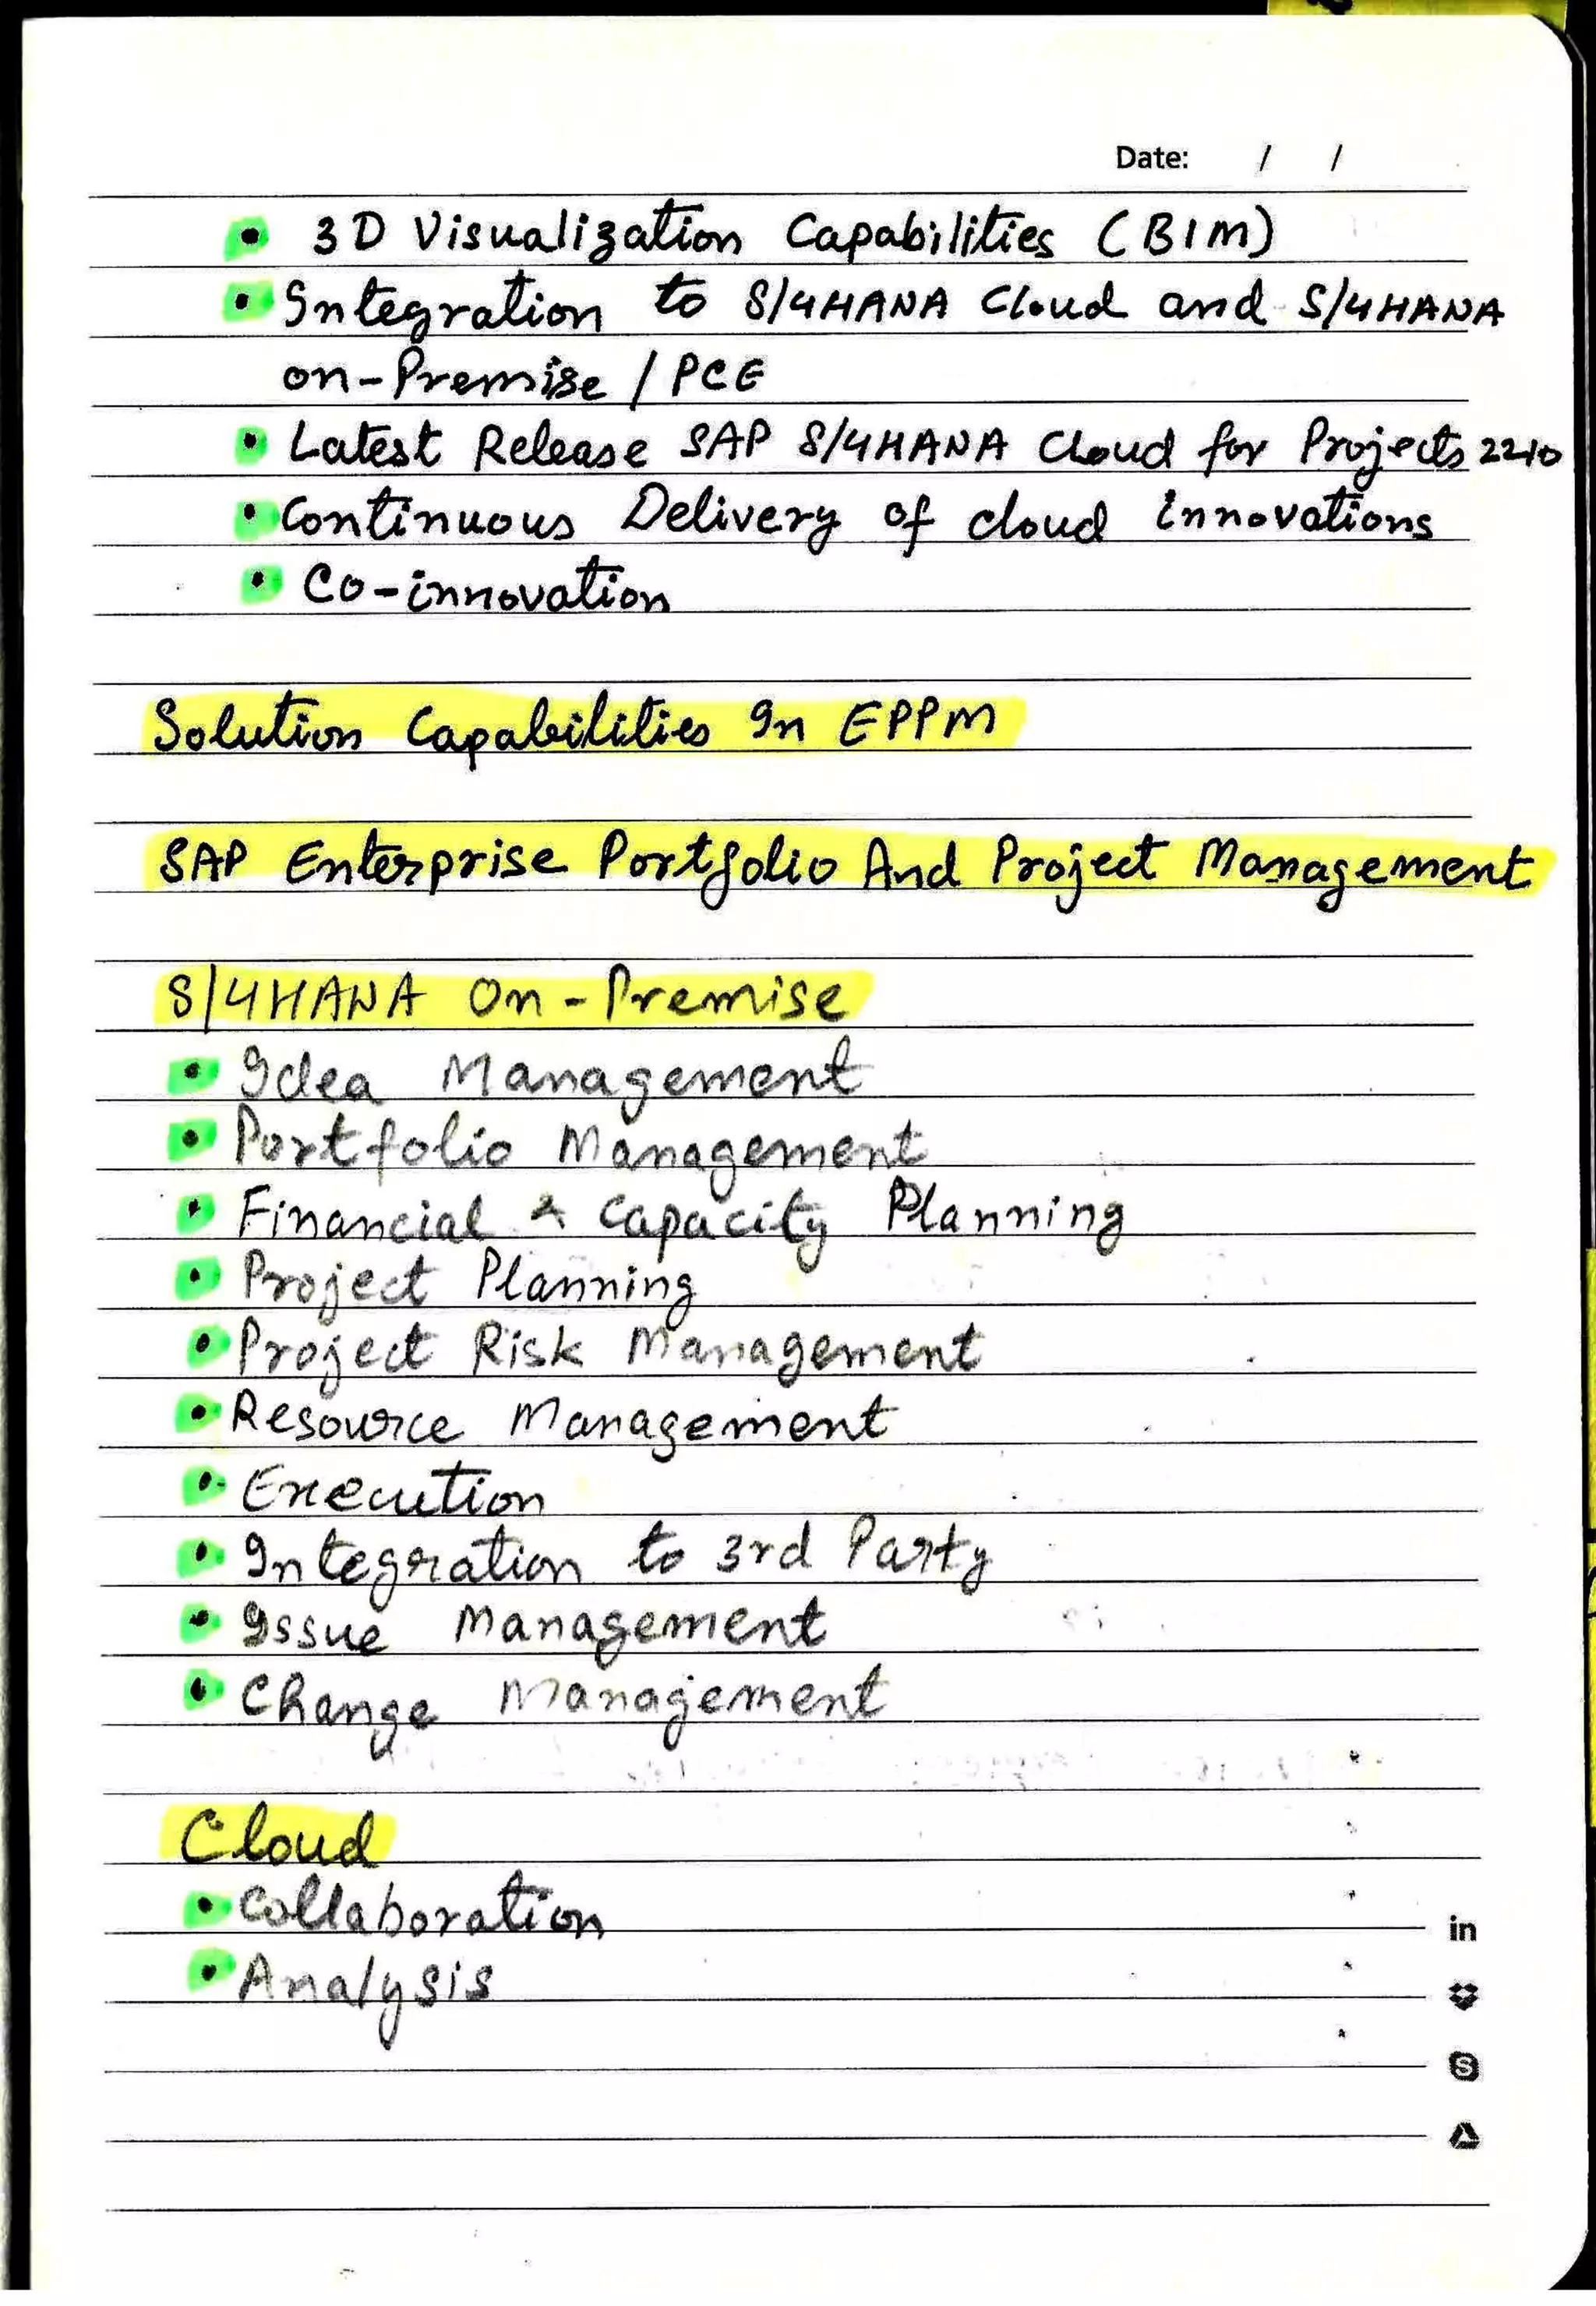 Date: / /
• 3D Visualization Capabilities (BIM)
• Integration to S/4HANA Cloud and S/4HANA
on-Premise / PCE
• Latest Release SAP S/4HANA Cloud for Projects 2210
• Continuous Delivery of cloud innovations
• Co-innovation
Solution Capabilities In EPPM
SAP Enterprise Portfolio And Project Management
S/4HANA On-Premise
• Idea Management
• Portfolio Management
• Financial & Capacity Planning
• Project Planning
• Project Risk Management
• Resource Management
• Execution
• Integration to 3rd Party
• Issue Management
• Change Management
Cloud
• Collaboration
• Analysis
in